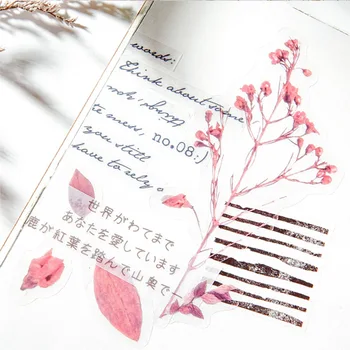 words:
Think about some
not,
the mess, no.08:)
you still
have to rely
世界がわてまで
あなたを愛しています
鹿が紅葉を踏んで山奥で